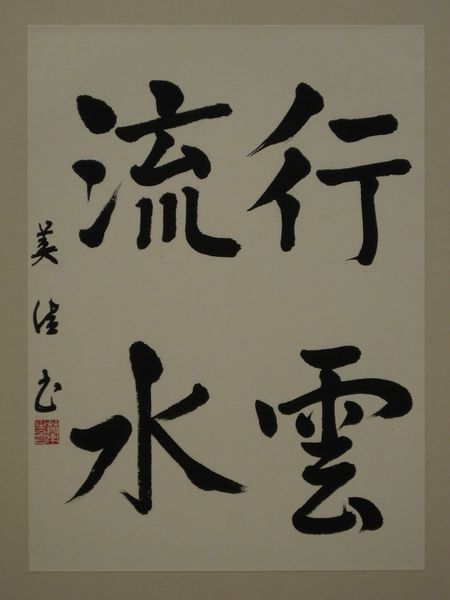 行雲
流水
美佳书